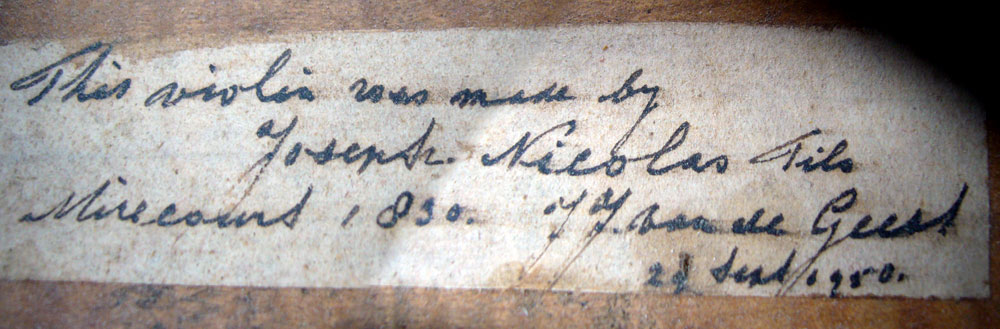 This violin was made by
Joseph Nicolas Fils
Mirecourt 1830. J.J. van de Geest
Sept 1950.